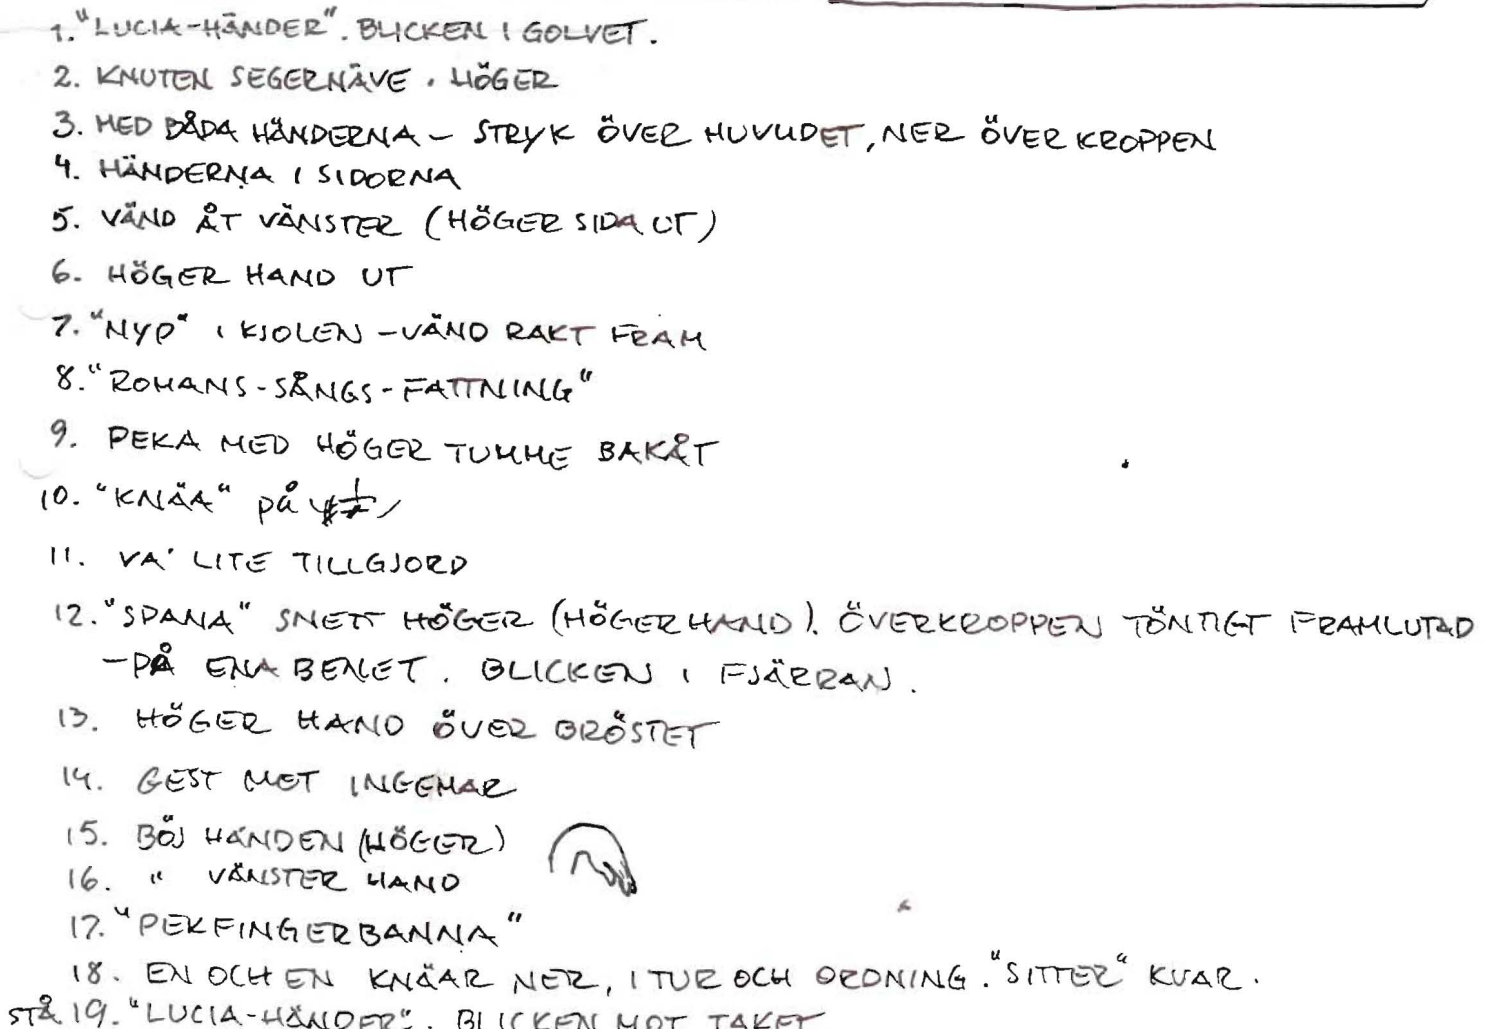 1. "LUCIA-HÄNDER". BLICKEN I GOLVET.
2. KNUTEN SEGERNÄVE. HÖGER
3. MED BÅDA HÄNDERNA – STRYK ÖVER HUVUDET, NER ÖVER KROPPEN
4. HÄNDERNA I SIDORNA
5. VÄND ÅT VÄNSTER (HÖGER SIDA UT)
6. HÖGER HAND UT
7. "NYP" I KJOLEN – VÄND RAKT FRAM
8. "ROMANS-SÅNGS-FATTNING"
9. PEKA MED HÖGER TUMME BAKÅT
10. "KNÄA" på
11. VA' LITE TILLGJORD
12. "SPANA" SNETT HÖGER (HÖGER HAND). ÖVERKROPPEN TÖNTIGT FRAMLUTAD
– PÅ ENA BENET. BLICKEN I FJÄRRAN.
13. HÖGER HAND ÖVER BRÖSTET
14. GEST MOT INGEMAR
15. BÖJ HANDEN (HÖGER)
16. " VÄNSTER HAND
17. "PEKFINGERBANNA"
18. EN OCH EN KNÄAR NER, I TUR OCH ORDNING. "SITTER" KVAR.
STÅ 19. "LUCIA-HÄNDER". BLICKEN MOT TAKET